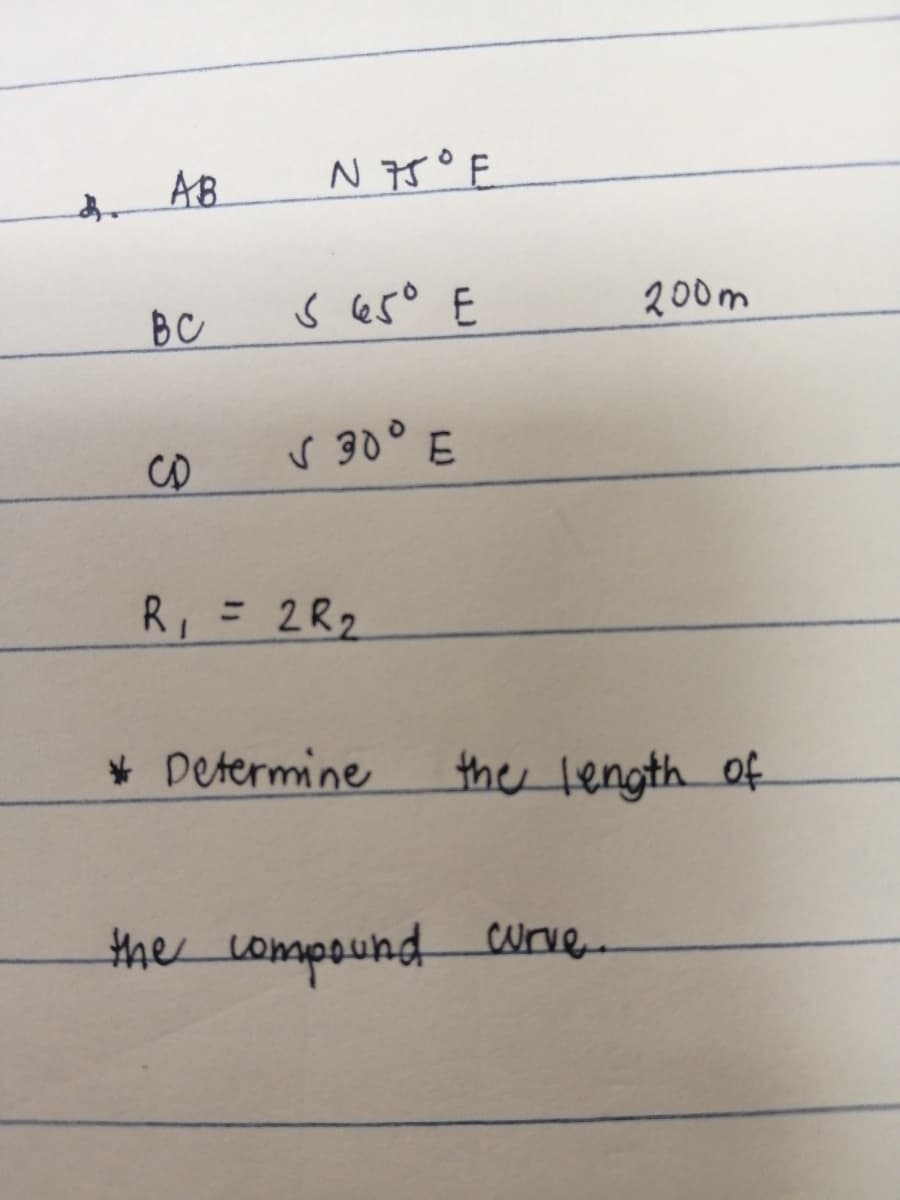 AB N 75° E
BC S 65° E 200m
CD S 30° E
R₁ = 2R₂
* Determine the length of
the compound curve.